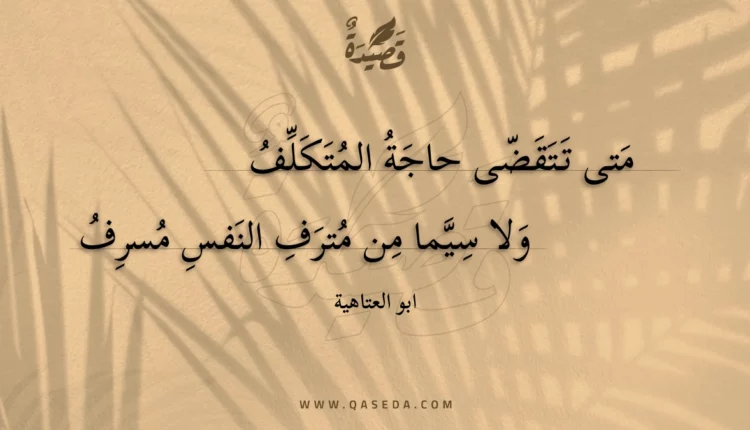 قَصِيْدَةٌ
مَتى تَتَقَضّى حاجَةُ المُتَكَلِّفُ
وَلا سِيَّما مِن مُترَفِ النَفسِ مُسرِفُ
ابو العتاهية
WWW.QASEDA.COM